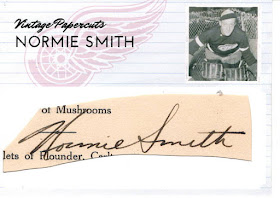 Vintage Papercuts
NORMIE SMITH
of Mushrooms
Normie Smith
lets of Flounder, Carl